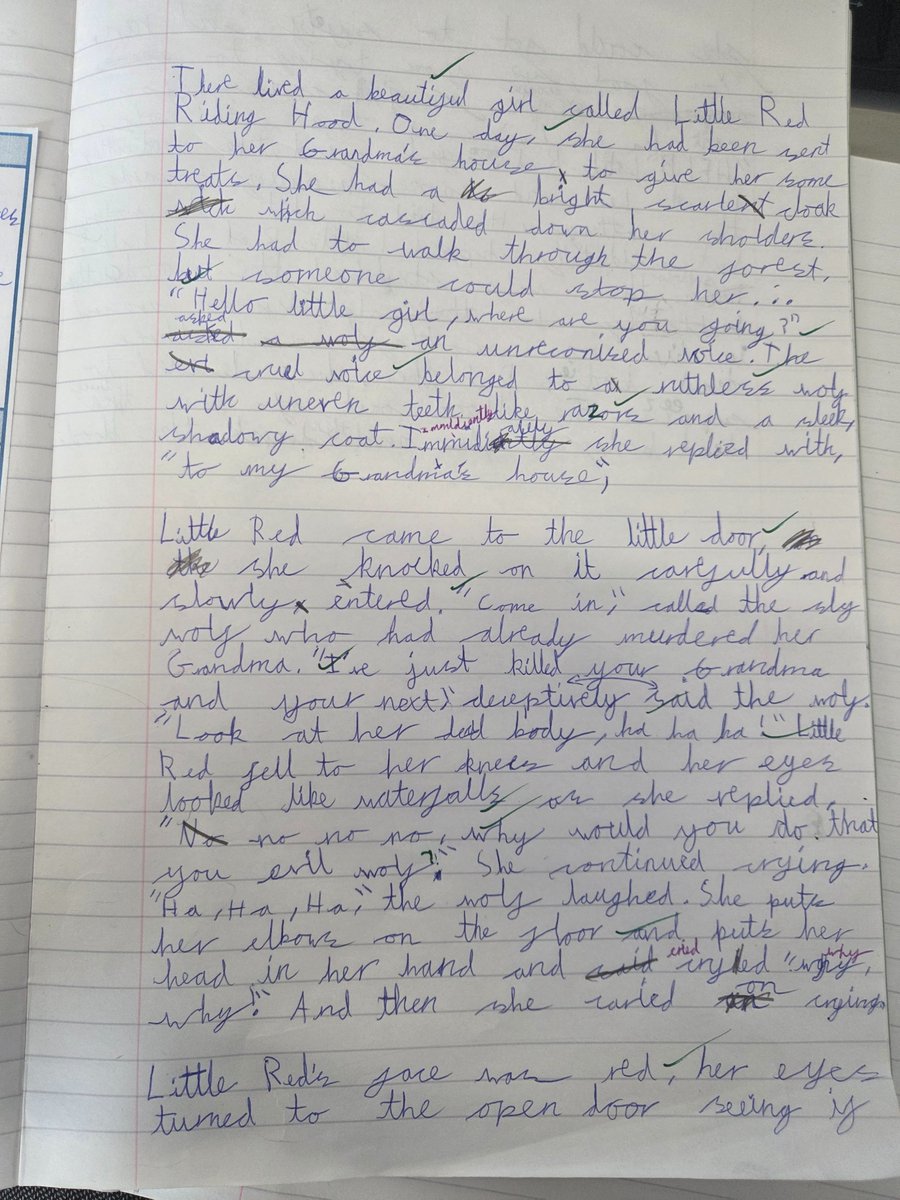 There lived a beautiful girl called Little Red
Riding Hood. One day, she had been sent
to her Grandma's house to give her some
treats. She had a bright scarlet cloak
which cascaded down her sholders.
She had to walk through the forest,
but someone could stop her...
"Hello little girl, where are you going?"
asked an unreconised voice. The
cruel voice belonged to a ruthless wolf
with uneven teeth like razors and a sleek,
immidiently
shadowy coat. she replied with,
"to my Grandma's house,"
Little Red came to the little door,
she knocked on it carefully and
slowly entered. "Come in," called the sly
wolf who had already murdered her
Grandma. "I've just killed your Grandma
and your next," deceptively said the wolf.
"Look at her dead body, ha ha ha!" Little
Red fell to her knees and her eyes
looked like waterfalls as she replied,
"No no no no, why would you do that
you evil wolf?!" She continued crying.
"Ha, Ha, Ha," the wolf laughed. She puts
her elbows on the floor and puts her
cried why
head in her hand and cryied "why,
why!" And then she caried on crying.
Little Red's face was red, her eyes
turned to the open door seeing if